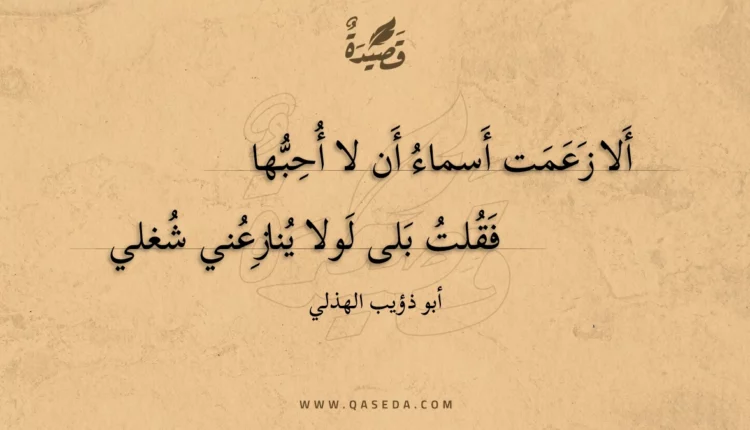 قَصِيدَةٌ
أَلا زَعَمَت أَسماءُ أَن لا أُحِبُّها
فَقُلتُ بَلى لَولا يُنازِعُني شُغلي
أبو ذؤيب الهذلي
WWW.QASEDA.COM